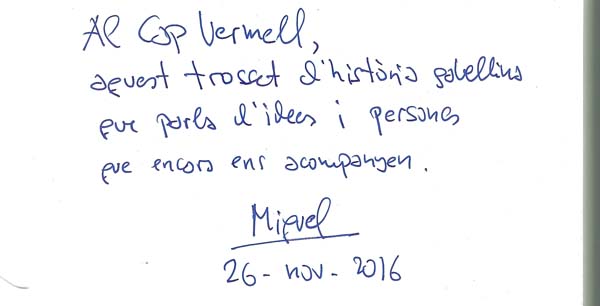 Al Cap Vermell,
aquest trosset d'història gabellina
que parla d'idees i persones
que encara ens acompanyen.
Miquel
26-nov-2016